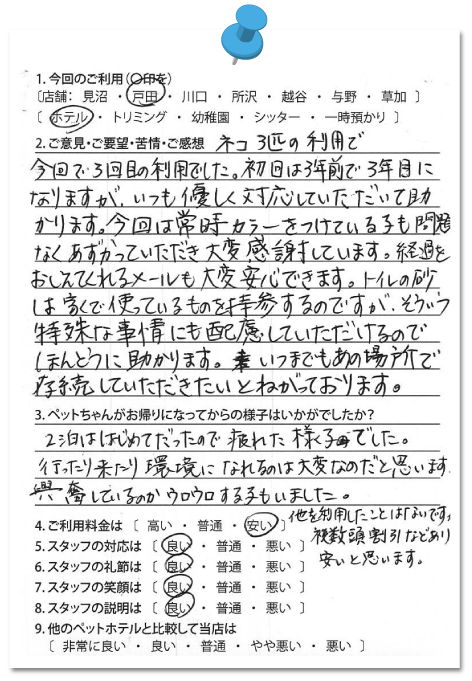 1. 今回のご利用(○印を)
〔店舗: 見沼 ・ 戸田 ・ 川口 ・ 所沢 ・ 越谷 ・ 与野 ・ 草加 〕
〔 ホテル ・ トリミング ・ 幼稚園 ・ シッター ・ 一時預かり 〕
2. ご意見・ご要望・苦情・ご感想 ネコ 3匹の利用で
今回で3回目の利用でした。初回は3年前で3年目に
なりますが、いつも優しく対応していただいて助
かります。今回は常時カラーをつけている子も問題
なくあずかっていただき大変感謝しています。経過を
おしえてくれるメールも大変安心できます。トイレの砂
は家で使っているものを持参するのですが、そういう
特殊な事情にも配慮していただけるので
ほんとうに助かります。いつまでもあの場所で
存続していただきたいとねがっております。
3. ペットちゃんがお帰りになってからの様子はいかがでしたか?
2泊ははじめてだったので疲れた様子でした。
行ったり来たり環境になれるのは大変なのだと思います
興奮しているのかウロウロする子もいました。
4. ご利用料金は 〔 高い ・ 普通 ・ 安い 〕 他を利用したことはないです。
複数頭割引などあり
安いと思います。
5. スタッフの対応は 〔 良い ・ 普通 ・ 悪い 〕
6. スタッフの礼節は 〔 良い ・ 普通 ・ 悪い 〕
7. スタッフの笑顔は 〔 良い ・ 普通 ・ 悪い 〕
8. スタッフの説明は 〔 良い ・ 普通 ・ 悪い 〕
9. 他のペットホテルと比較して当店は
〔 非常に良い ・ 良い ・ 普通 ・ やや悪い ・ 悪い 〕